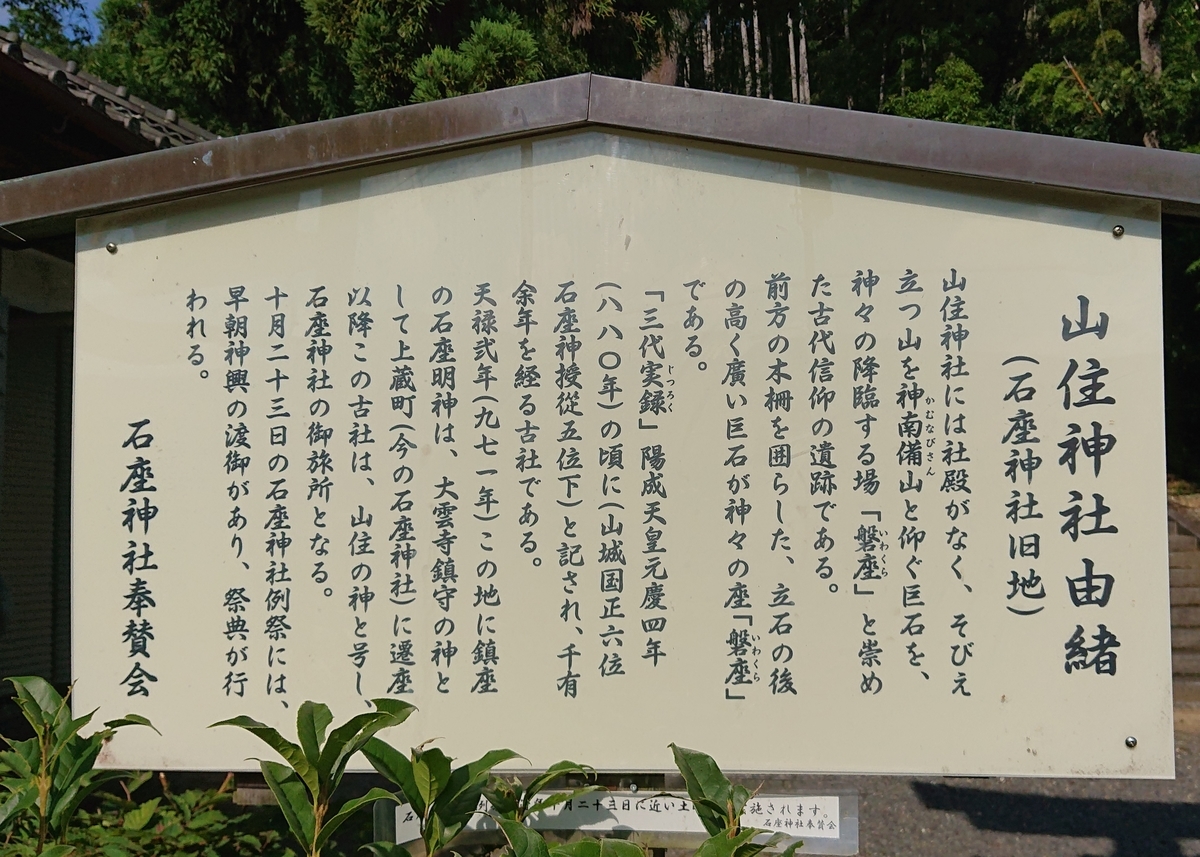 山住神社由緒
(石座神社旧地)
山住神社には社殿がなく、そびえ
立つ山を神南備山と仰ぐ巨石を、
かむなびさん
神々の降臨する場「磐座」と崇め
いわくら
た古代信仰の遺跡である。
前方の木柵を囲らした、立石の後
の高く廣い巨石が神々の座「磐座」
いわくら
である。
「三代実録」陽成天皇元慶四年
じつろく
(八八〇年)の頃に(山城国正六位
石座神授従五位下)と記され、千有
余年を経る古社である。
天禄弐年(九七一年)この地に鎮座
の石座明神は、大雲寺鎮守の神と
して上蔵町(今の石座神社)に遷座
以降この古社は、山住の神と号し、
石座神社の御旅所となる。
十月二十三日の石座神社例祭には、
早朝神輿の渡御があり、祭典が行
われる。
石座神社奉賛会
月二十三日に近い土 施されます。
石座神社奉賛会